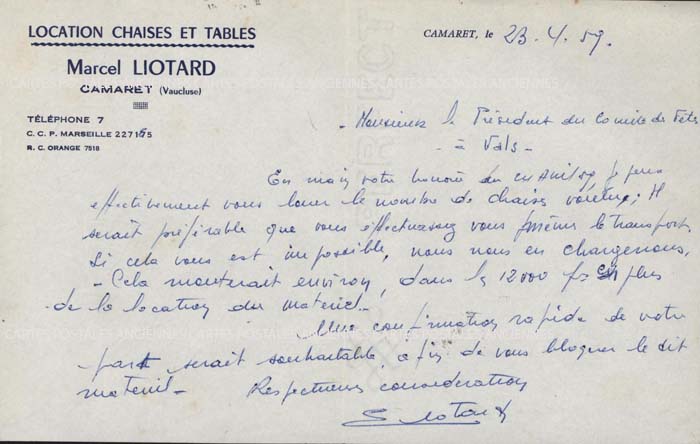 LOCATION CHAISES ET TABLES
Marcel LIOTARD
CAMARET (Vaucluse)
TÉLÉPHONE 7
C. C. P. MARSEILLE 227155
R. C. ORANGE 7518
CAMARET, le 23. 4. 59.
- Monsieur le Président du Comité de Fêtes
- à Vals -
En main votre honorée du je peux
effectivement vous louer le nombre de chaises voulues; Il
serait préférable que vous effectuassiez vous même le transport,
Si cela vous est impossible, nous nous en chargerons,
- Cela monterait environ, dans les 12 000 frs en plus
de la location du matériel -
Une confirmation rapide de votre
part serait souhaitable, afin de vous bloquer le dit
matériel - Respectueuse considération